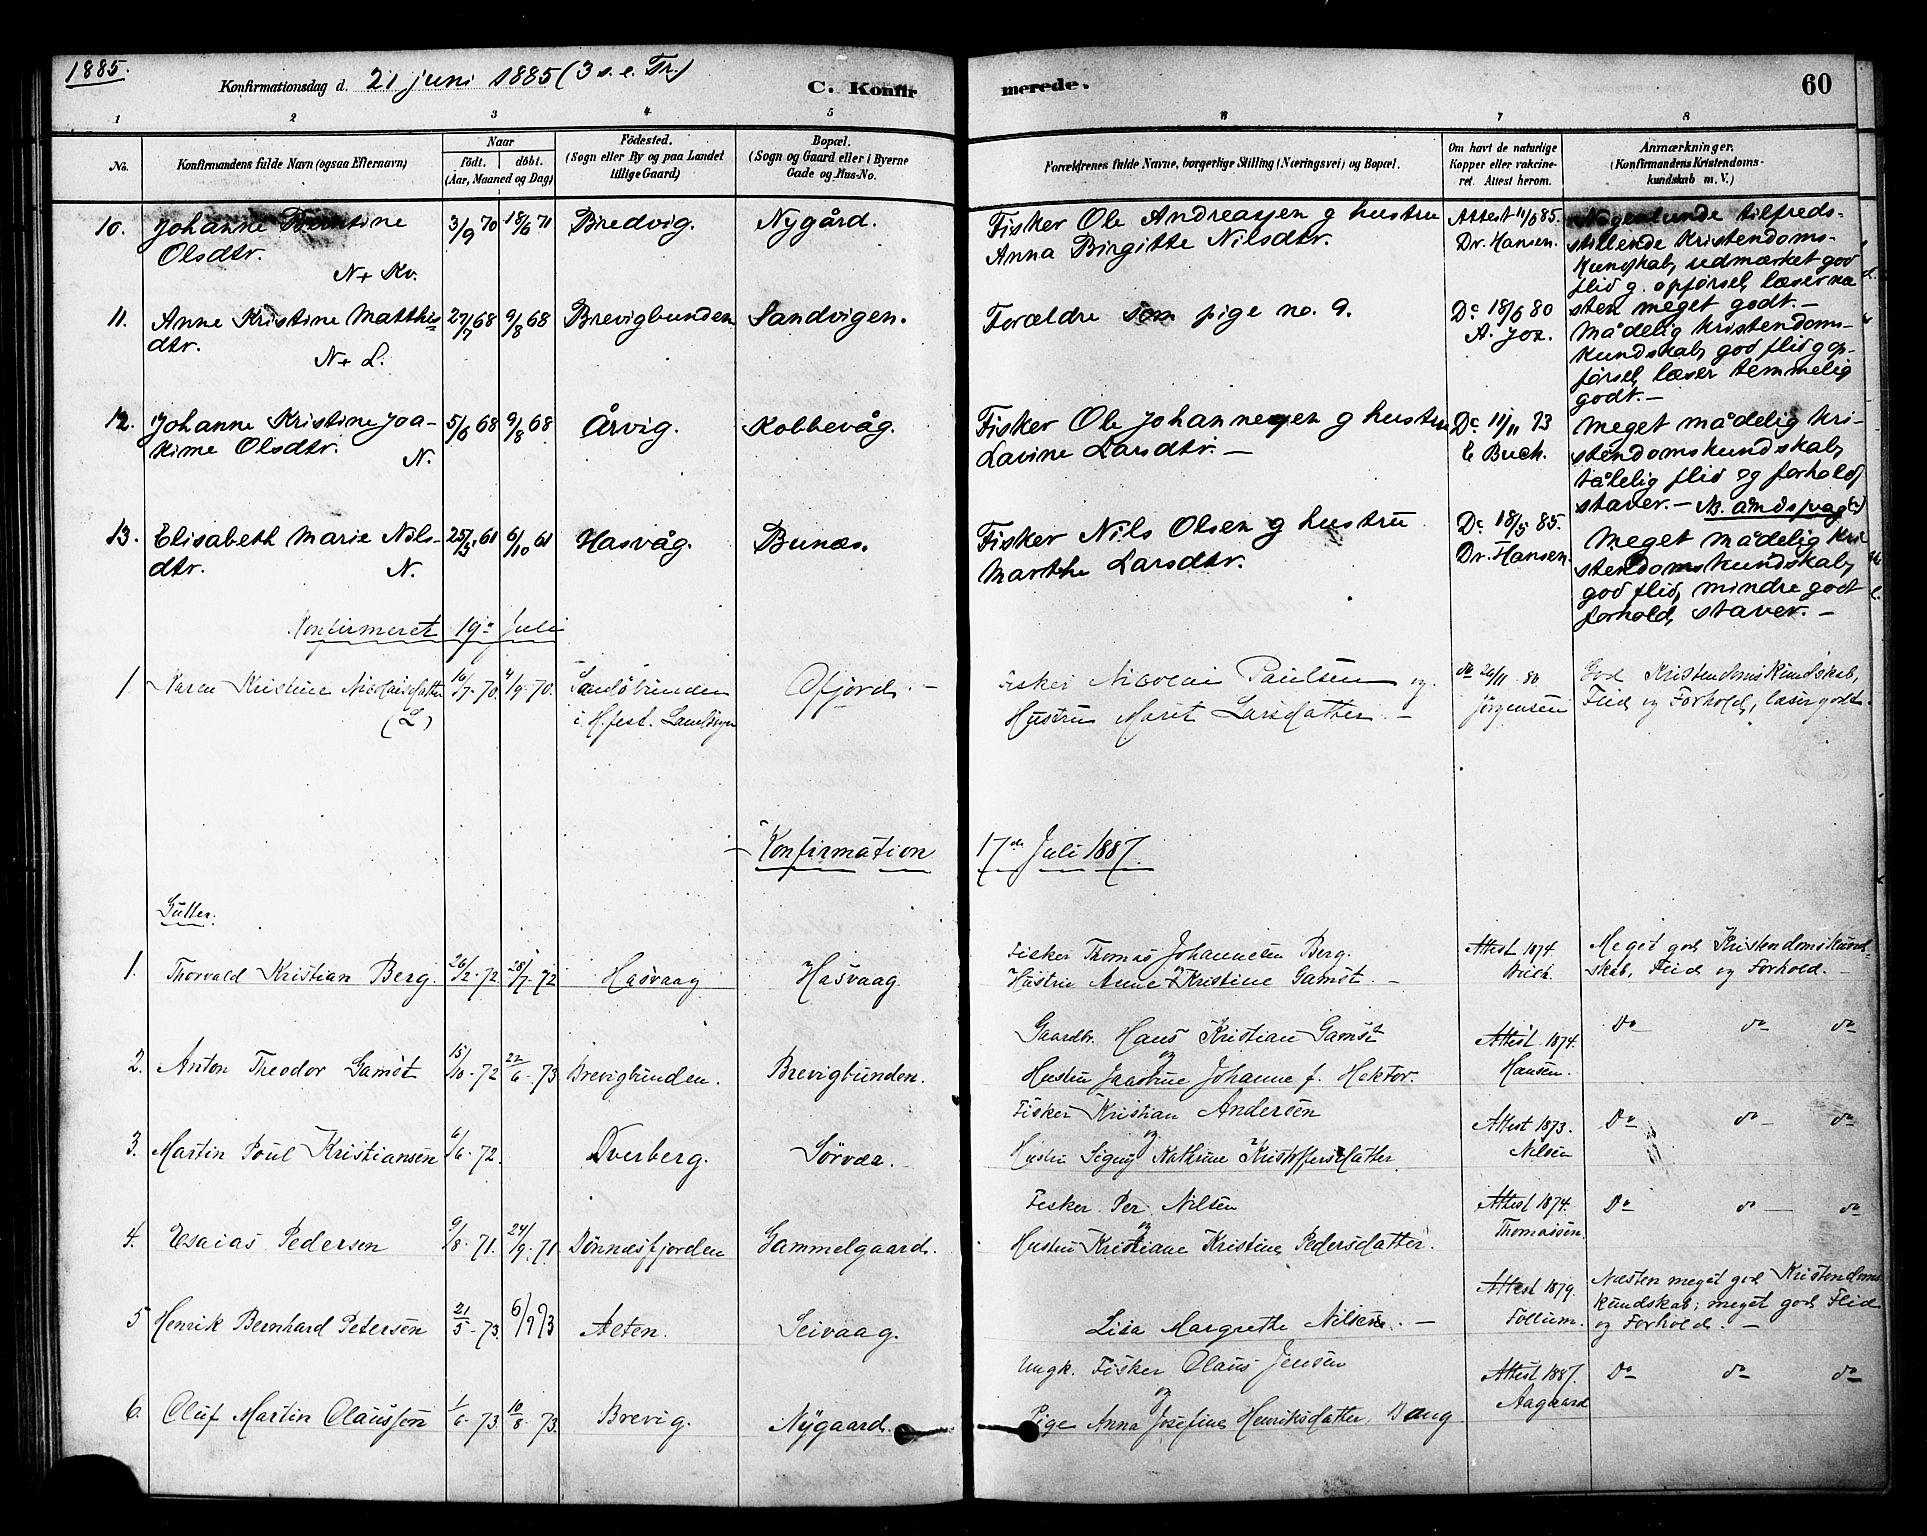 1885.
Konfirmationsdag d. 21 juni 1885 (3 s. e. Tr.)
C. Konfirmerede.
60
1 2 3 4 5 6 7 8
No.
Konfirmandens fulde Navn (ogsaa Efternavn)
Naar
födt. döbt.
(Aar, Maaned og Dag)
Födested.
(Sogn eller By og paa Landet
tillige Gaard)
Bopæl.
(Sogn og Gaard eller i Byerne
Gade og Hus-No.
Forældrenes fulde Navne, borgerlige Stilling (Næringsvei) og Bopæl.
Om havt de naturlige
Kopper eller vakcine-
ret. Attest herom.
Anmærkninger.
(Konfirmandens Kristendoms-
kundskab m. V.)
10. Johanne Berntine 3/9 70 18/6 71 Bredvig. Nygård. Fisker Ole Andreassen g hustru Attest 11/6 85. Nogenlunde tilfreds-
Olsdtr. Anna Birgitte Nilsdtr. Dr. Hansen. stillende Kristendoms-
N + Kv. Kundskab, udmærket god
flid g. opførsel, læser næ
11. Anne Kristine Matthis 27/7 68 9/8 68 Brevigbunden Sandvigen. Forældre som pige no. 9. Do 18/6 80 sten meget godt. -
dtr. A. Jox. Mådelig Kristendoms-
N + L. kundskab, god flid g op-
førsel, læser temmelig
godt. -
12. Johanne Kristine Joa- 5/6 68 9/8 68 Årvig. Kobbevåg. Fisker Ole Johannessen g hustru Do 11/11 73 Meget mådelig Kri-
kime Olsdtr. N. Lavine Larsdtr. - E Buch. stendomskundskab,
tålelig flid og forhold,
staver. - N. åndsvag (?)
13. Elisabeth Marie Nils- 25/5 61 6/10 61 Hasvåg. Bunæs. Fisker Nils Olsen g hustru Do 18/5 85. Meget mådelig Kri
dtr. N. Marthe Larsdtr. Dr. Hansen. stendomskundskab,
god flid, mindre godt
forhold, staver. -
Konfirmeret 19de Juli
1. Karen Kristine Nicolaisdatter 16/7 70. 4/9 70. Sandöbunden Ofjord. - Fisker Nicolai Paulsen og do 26/11 80 God Kristendomskundskab,
(L) i Hfest. Landsogn Hustru Marit Larsdatter. - Jörgensen Flid og Forhold, læser godt.
- Konfirmation 17de Juli 1887.
Gutter.
1. Thorvald Kristian Berg. 26/2 72. 28/7 72 Hasvaag Hasvaag Fisker Thomas Johannesen Berg. Attest 1874 Meget god Kristendomskund-
Hustru Anne Kristine Gamst. - Buch. skab, Flid og Forhold. -
2. Anton Theodor Gamst 15/10 72 22/6 73 Brevigbunden. Brevigbunden. Gaardbr. Hans Kristian Gamst Attest 1874. Do do do
og
Hustru Johanne f. Hektor. Hansen.
3. Martin Poul Kristiansen 6/6 72. Dverberg. Sörvær. Fisker Kristian Andersen Attest 1873. Do do - do
og
Hustru Signy Kathrine Kristoffersdatter Nilsen
4. Esaias Pedersen 9/8 71. 24/9 71 Dönnæsfjorden Gammelgaard. Fisker Per Nilsen Attest 1874. Do do - do
og
Hustru Kristiane Kristine Pedersdatter. Thomassen.
5 Henrik Bernhard Petersen 21/5 73. 6/7 73 Alten. Seivaag. Lisa Margrethe Nilsen. - Attest 1879. Næsten meget god Kristendoms
Follum. kundskab; meget god Flid
og Forhold. -
6. Oluf Martin Claussen 1/6 73. 10/8 73. Brevig. Nygaard. Ungk. Fisker Claus Jensen Attest 1887. Do do do
og
Pige Anna Josefine Henriksdatter Aagaard